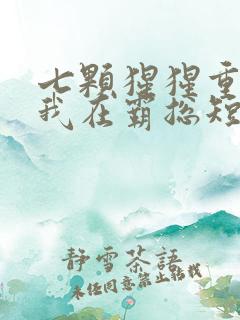 七顆猩猩重
我在霸總短
靜雪茶語
未經同意禁止轉載